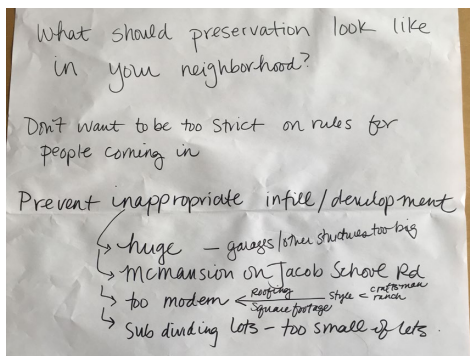 What should preservation look like
in your neighborhood?
Don't want to be too strict on rules for
people coming in
Prevent inappropriate infill/development
huge — garages/other structures too big
McMansion on Jacob Schove Rd
too modern Roofing Square footage style craftsman ranch
Sub dividing lots – too small of lots.